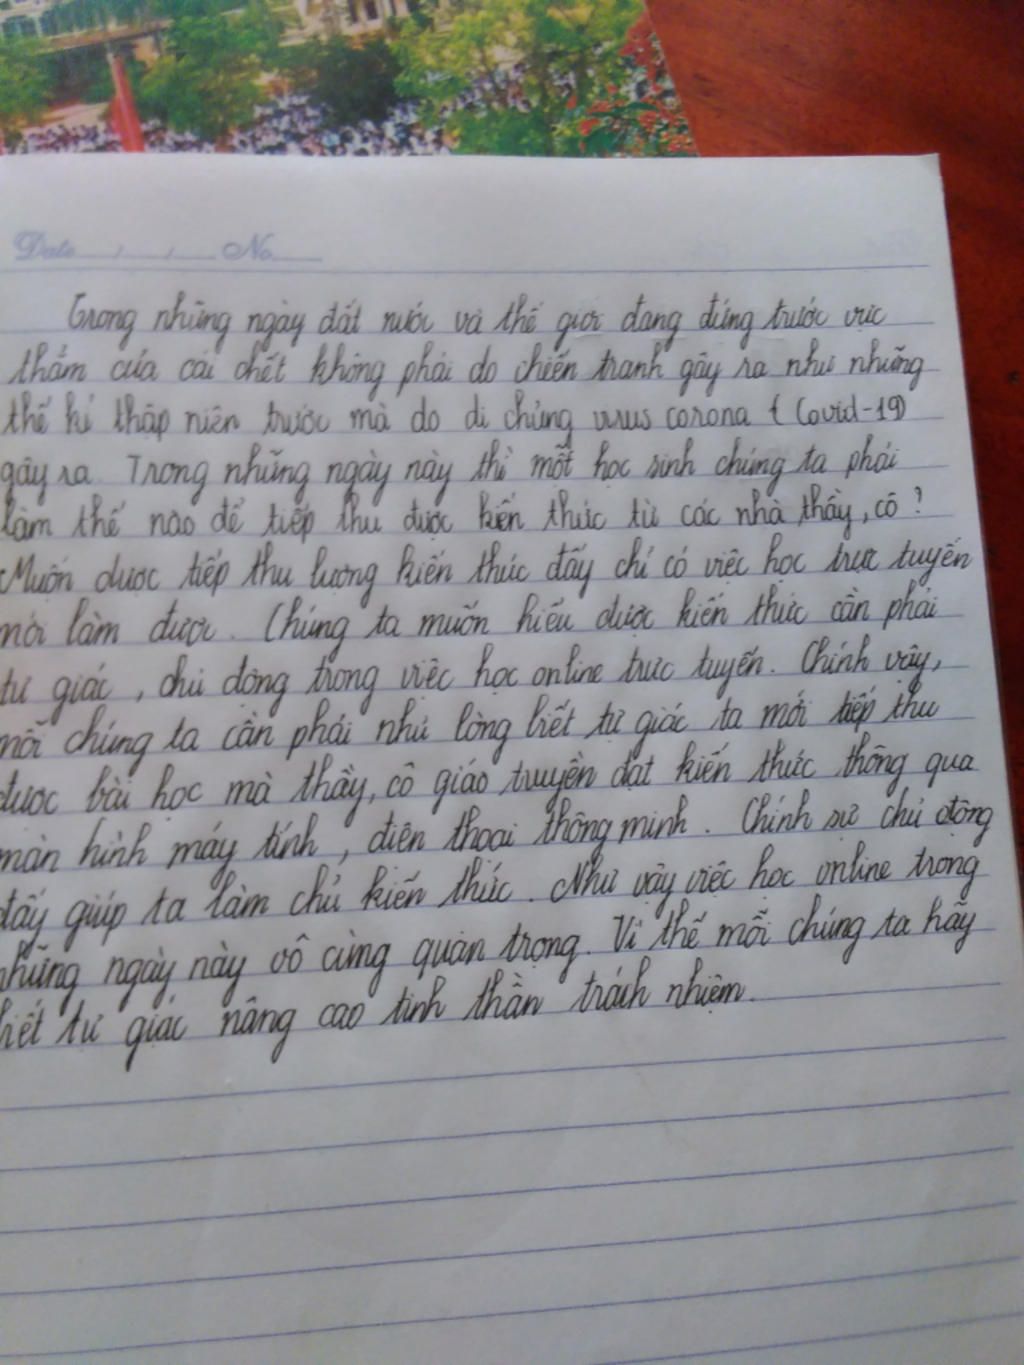 Date / / No
Trong những ngày đất nước và thế giới đang đứng trước vực
thẳm của cái chết không phải do chiến tranh gây ra như những
thế kỉ thập niên trước mà do di chủng virus corona ( Covid-19)
gây ra. Trong những ngày này thì mỗi học sinh chúng ta phải
làm thế nào để tiếp thu được kiến thức từ các nhà thầy, cô ?
Muốn được tiếp thu lượng kiến thức đấy chỉ có việc học trực tuyến
mới làm được. Chúng ta muốn hiểu được kiến thức cần phải
tự giác, chủ động trong việc học online trực tuyến. Chính vậy,
mỗi chúng ta cần phải nhủ lòng biết tự giác ta mới tiếp thu
được bài học mà thầy, cô giáo truyền đạt kiến thức thông qua
màn hình máy tính, điện thoại thông minh. Chính sự chủ động
đấy giúp ta làm chủ kiến thức. Như vậy việc học online trong
những ngày này vô cùng quan trọng. Vì thế mỗi chúng ta hãy
biết tự giác nâng cao tinh thần trách nhiệm.